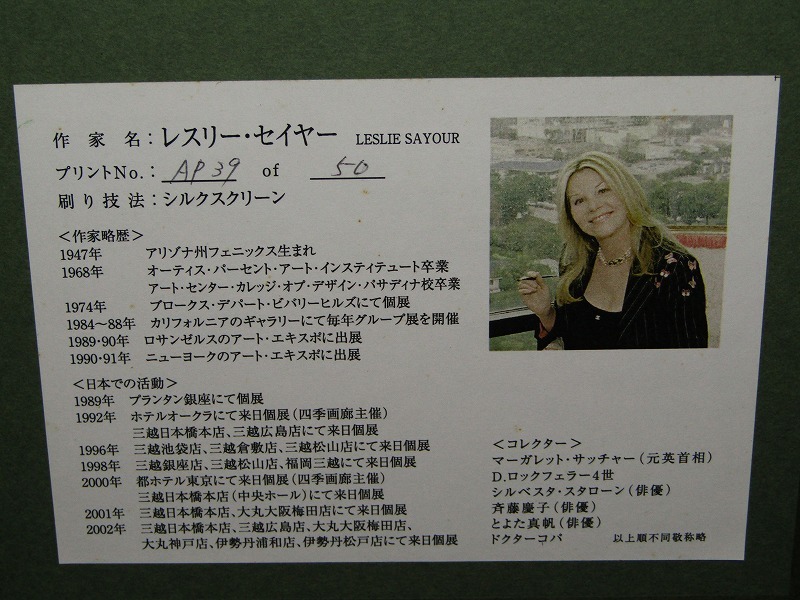 作家名：レスリー・セイヤー LESLIE SAYOUR
プリントNo.： AP 39 of 50
刷り技法：シルクスクリーン
＜作家略歴＞
1947年 アリゾナ州フェニックス生まれ
1968年 オーティス・パーセント・アート・インスティテュート卒業
アート・センター・カレッジ・オブ・デザイン・パサディナ校卒業
1974年 ブロークス・デパート・ビバリーヒルズにて個展
1984～88年 カリフォルニアのギャラリーにて毎年グループ展を開催
1989・90年 ロサンゼルスのアート・エキスポに出展
1990・91年 ニューヨークのアート・エキスポに出展
＜日本での活動＞
1989年 プランタン銀座にて個展
1992年 ホテルオークラにて来日個展（四季画廊主催）
三越日本橋本店、三越広島店にて来日個展
1996年 三越池袋店、三越倉敷店、三越松山店にて来日個展
1998年 三越銀座店、三越松山店、福岡三越にて来日個展
2000年 都ホテル東京にて来日個展（四季画廊主催）
三越日本橋本店（中央ホール）にて来日個展
2001年 三越日本橋本店、大丸大阪梅田店にて来日個展
2002年 三越日本橋本店、三越広島店、大丸大阪梅田店、
大丸神戸店、伊勢丹浦和店、伊勢丹松戸店にて来日個展
＜コレクター＞
マーガレット・サッチャー（元英首相）
D.ロックフェラー4世
シルベスタ・スタローン（俳優）
斉藤慶子（俳優）
とよた真帆（俳優）
ドクターコパ 以上順不同敬称略